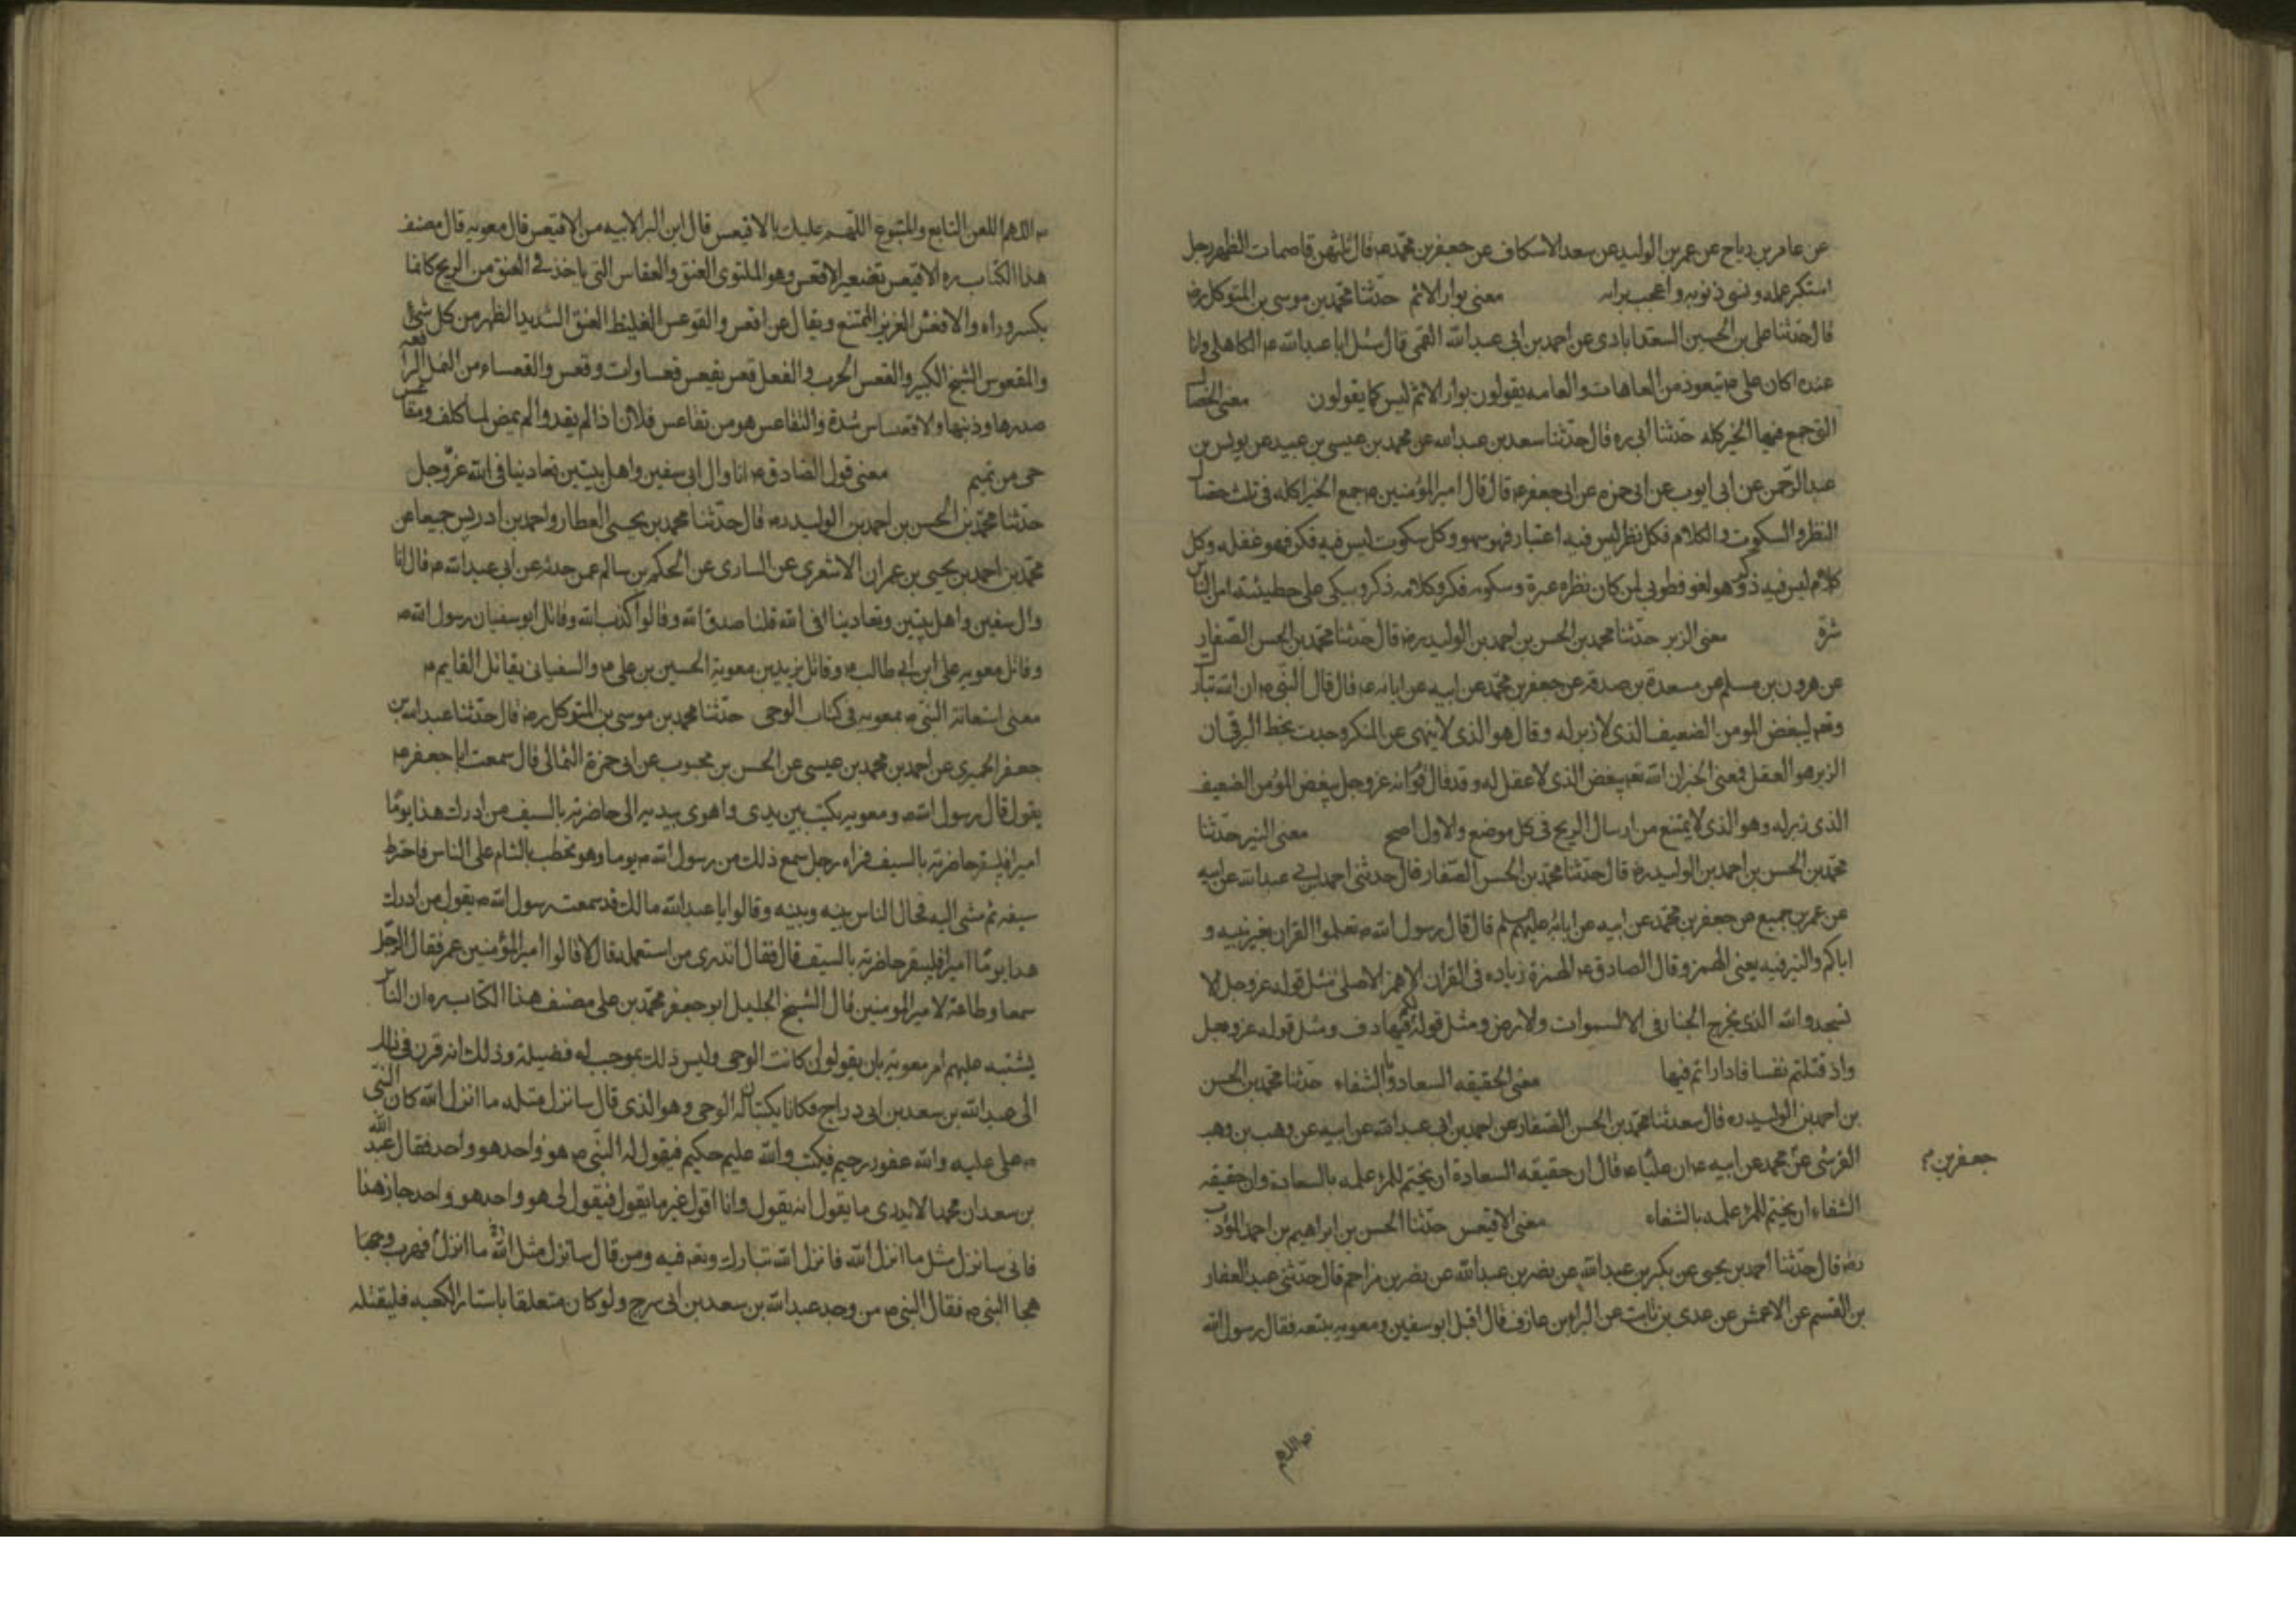 عن عامر بن رياح عن عمر بن الوليد عن سعد الاسكاف عن جعفر بن محمد ع قال ثلثهن قاصمات الظهر رجل
استكثر عمله ونسى ذنوبه واعجب برايه معنى بوار الاثم حدثنا محمد بن موسى بن المتوكل رض
قال حدثنا على بن الحسين السعدابادى عن احمد بن ابى عبد الله القمى قال سئل ابا عبد الله ع الكاهلى وانا
عنده اكان على ع يتعوذ من العاهات والعامه يقولون بوار الاثم ليس كما يقولون معنى الخصال
التى جمع فيها الخير كله حدثنا ابى ره قال حدثنا سعد بن عبد الله عن محمد بن عيسى بن عبيد عن يونس بن
عبد الرحمن عن ابى ايوب عن ابى حمزه عن ابى جعفر ع قال قال امير المؤمنين ع جمع الخير كله فى ثلث خصال
النظر والسكوت والكلام فكل نظر ليس فيه اعتبار فهو سهو وكل سكوت ليس فيه فكر فهو غفله وكل
كلام ليس فيه ذكر فهو لغو فطوبى لمن كان نظره عبرة وسكوته فكر وكلامه ذكر وبكى على خطيئته امن الناس
شره معنى الزبر حدثنا محمد بن الحسن بن احمد بن الوليد رض قال حدثنا محمد بن الحسن الصفار
عن هرون بن مسلم عن مسعدة بن صدقه عن جعفر بن محمد عن ابيه عن ابائه ع قال قال النبى ص ان الله تبارك
وتعه ليبغض المومن الضعيف الذى لا زبر له وقال هو الذى لا ينهى عن المنكر وجدت بخط البرقى ان
الزبر هو العقل فمعنى الخبر ان الله تعه يبغض الذى لا عقل له وقد قال قوم انه عز وجل يبغض المؤمن الضعيف
الذى زبر له وهو الذى لا يمتنع من ارسال الريح فى كل موضع والاول اصح معنى النبر حدثنا
محمد بن الحسن بن احمد بن الوليد ره قال حدثنا محمد بن الحسن الصفار قال حدثنى احمد بن ابى عبد الله عن ابيه
عن عمر بن جميع عن جعفر بن محمد عن ابيه عن ابائه عليهم السلم قال قال رسول الله ص تعلموا القران بعربيه و
اياكم والنبر فيه يعنى الهمز وقال الصادق ع الهمزة زياده فى القران الا همز الاصلى مثل قوله عز وجل الا
تسجدوا لله الذى يخرج الخبا فى السموات والارض ومثل قوله لكم فيها دف ومثل قوله عز وجل
واذ قتلتم نفسا فادارأتم فيها معنى الحقيقه السعادة والشقاء حدثنا محمد بن الحسن
بن احمد بن الوليد ره قال حدثنا محمد بن الحسن الصفار عن احمد بن ابى عبد الله عن ابيه عن وهب بن وهب
القرشى عن محمد عن ابيه ع ان عليا ع قال ان حقيقه السعادة ان يختم للمرء عمله بالسعادة وان حقيقه
جعفر بن
الشقاء ان يختم للمرء عمله بالشقاء معنى الاقيعس حدثنا الحسن بن ابراهيم بن احمد المؤدب
رض قال حدثنا احمد بن يحيى عن بكر بن عبد الله عن نصر بن عبد الله عن نصر بن مزاحم قال حدثنى عبد الغفار
بن القسم عن الاعمش عن عدى بن ثابت عن البراء بن عازب قال اقبل ابو سفين ومعويه يتبعه فقال رسول الله
ص اللهم
ص اللهم العن التابع والمتبوع اللهم عليك بالاقيعس قال ابن البراء لابيه من الاقيعس قال معويه قال مصنف
هذا الكتاب ره الاقيعس تصغير الاقعس وهو الملتوى العنق والعقاس التى ياخذ فى العنق من الريح كانما
يكسر وراه والاقعس العزيز الممتنع ويقال عز اقعس والقوعس الغليظ العنق الشديد الظهر من كل شئ
والمقعوس الشيخ الكبير والقعس الحرب والفعل قعس يقعس قعسا وات وقعس والقعساء من النمل الرافعه
صدرها وذنبها والاقعساس شدة والتقاعس هو من تقاعس فلان اذا لم يقد والم يمض لما كلف ومقاعس
حى من تميم معنى قول الصادق ع انا وال ابى سفين واهل بيتين تعادينا فى الله عز وجل
حدثنا محمد بن الحسن بن احمد بن الوليد ره قال حدثنا محمد بن يحيى العطار واحمد بن ادريس جميعا عن
محمد بن احمد بن يحيى بن عمران الاشعرى عن السارى عن الحكم بن سالم عمن حدثه عن ابى عبد الله ع قال انا
وال سفين واهل بيتين وتعادينا فى الله قلنا صدق الله وقالوا كذب الله وقاتل ابو سفيان رسول الله ص
وقاتل معويه على ابن ابى طالب ع وقاتل يزيد بن معوية الحسين بن على ع والسفيانى يقاتل القايم ع
معنى استعانة النبى ص بمعويه فى كتاب الوحى حدثنا محمد بن موسى بن المتوكل رض قال حدثنا عبد الله بن
جعفر الحميرى عن احمد بن محمد بن عيسى عن الحسن بن محبوب عن ابى حمزة الثمالى قال سمعت ابا جعفر ع
يقول قال رسول الله ص ومعويه يكتب بين يدى واهوى بيديه الى خاصرته بالسيف من ادرك هذا يومًا
اميرا فليبقر خاصرته بالسيف فراه رجل سمع ذلك من رسول الله ص يوما وهو يخطب بالشام على الناس فاخترط
سيفه ثم مشى اليه فحال الناس بينه وبينه وقالوا يا عبد الله مالك قد سمعت رسول الله ص يقول من ادرك
هذا يومًا اميرا فليبقر خاصرته بالسيف قال فقال اتدرى من استعمله قال لا قالوا امير المؤمنين عمر فقال الرجل
سمعا وطاعة لامير المومنين قال الشيخ الجليل ابو جعفر محمد بن على مصنف هذا الكتاب ره ان الناس
يشتبه عليهم امر معوية بان يقولوا كان كاتب الوحى وليس ذلك بموجب له فضيلة وذلك انه قرن فى ذلك
الى عبد الله بن سعد بن ابى دراج فكانا يكتبان له الوحى وهو الذى قال سانزل مثله ما انزل الله كان النبى
ص على عليه والله غفور رحيم فيكتب والله عليم حكيم فيقول له النبى ص هو واحد هو واحد فقال عبد الله
بن سعد ان محمدا لا يدرى ما يقول انه يقول وانا اقول غير ما يقول فيقول لى هو واحد هو واحد جاز هذا
فانى سانزل مثل ما انزل الله فانزل الله تبارك وتعه فيه ومن قال سانزل مثل ما انزل الله فهرب وهجا
هجا النبى ص فقال النبى ص من وجد عبد الله بن سعد بن ابى سرح ولو كان متعلقا باستار الكعبه فليقتله